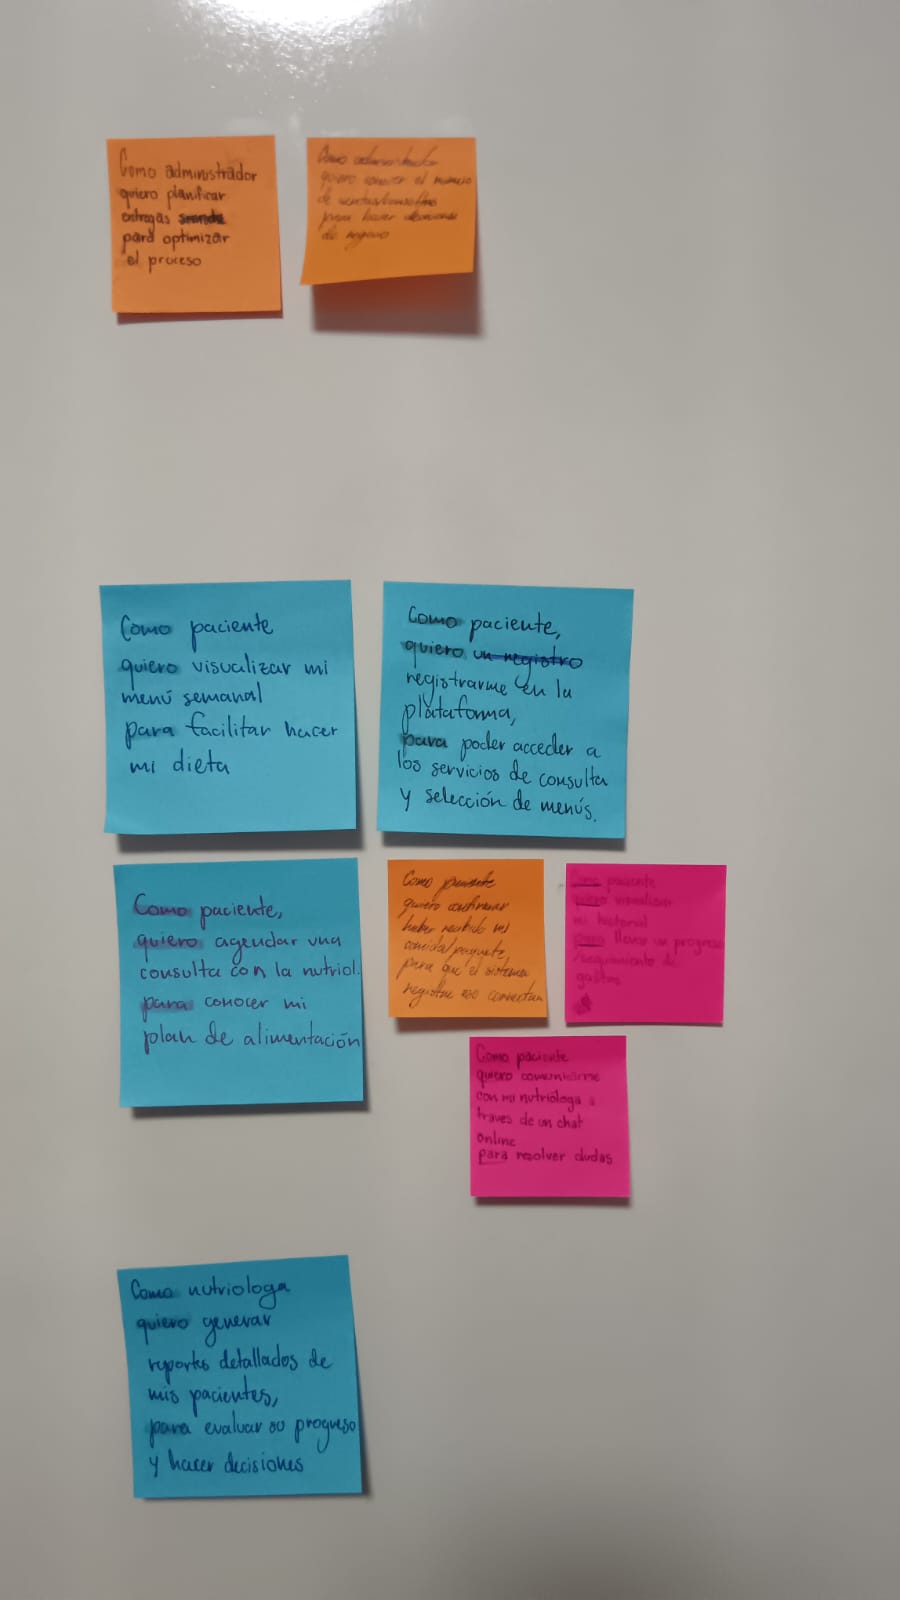 Como administrador
quiero planificar
entregas
para optimizar
el proceso
Como administrador
quiero conocer el número
de ventas/
para hacer decisiones
de negocio
Como paciente
quiero visualizar mi
menú semanal
para facilitar hacer
mi dieta
Como paciente,
quiero un registro
registrarme en la
plataforma,
para poder acceder a
los servicios de consulta
y selección de menús.
Como paciente,
quiero agendar una
consulta con la nutriol.
para conocer mi
plan de alimentación
Como paciente
quiero confirmar
haber recibido mi
comida/paquete,
para que el sistema
registre
Como paciente
quiero visualizar
mi historial
para llevar un progreso
/seguimiento de
gastos
Como paciente
quiero comunicarme
con mi nutrióloga a
traves de un chat
online
para resolver dudas
Como nutriologa
quiero generar
reportes detallados de
mis pacientes,
para evaluar su progreso
y hacer decisiones